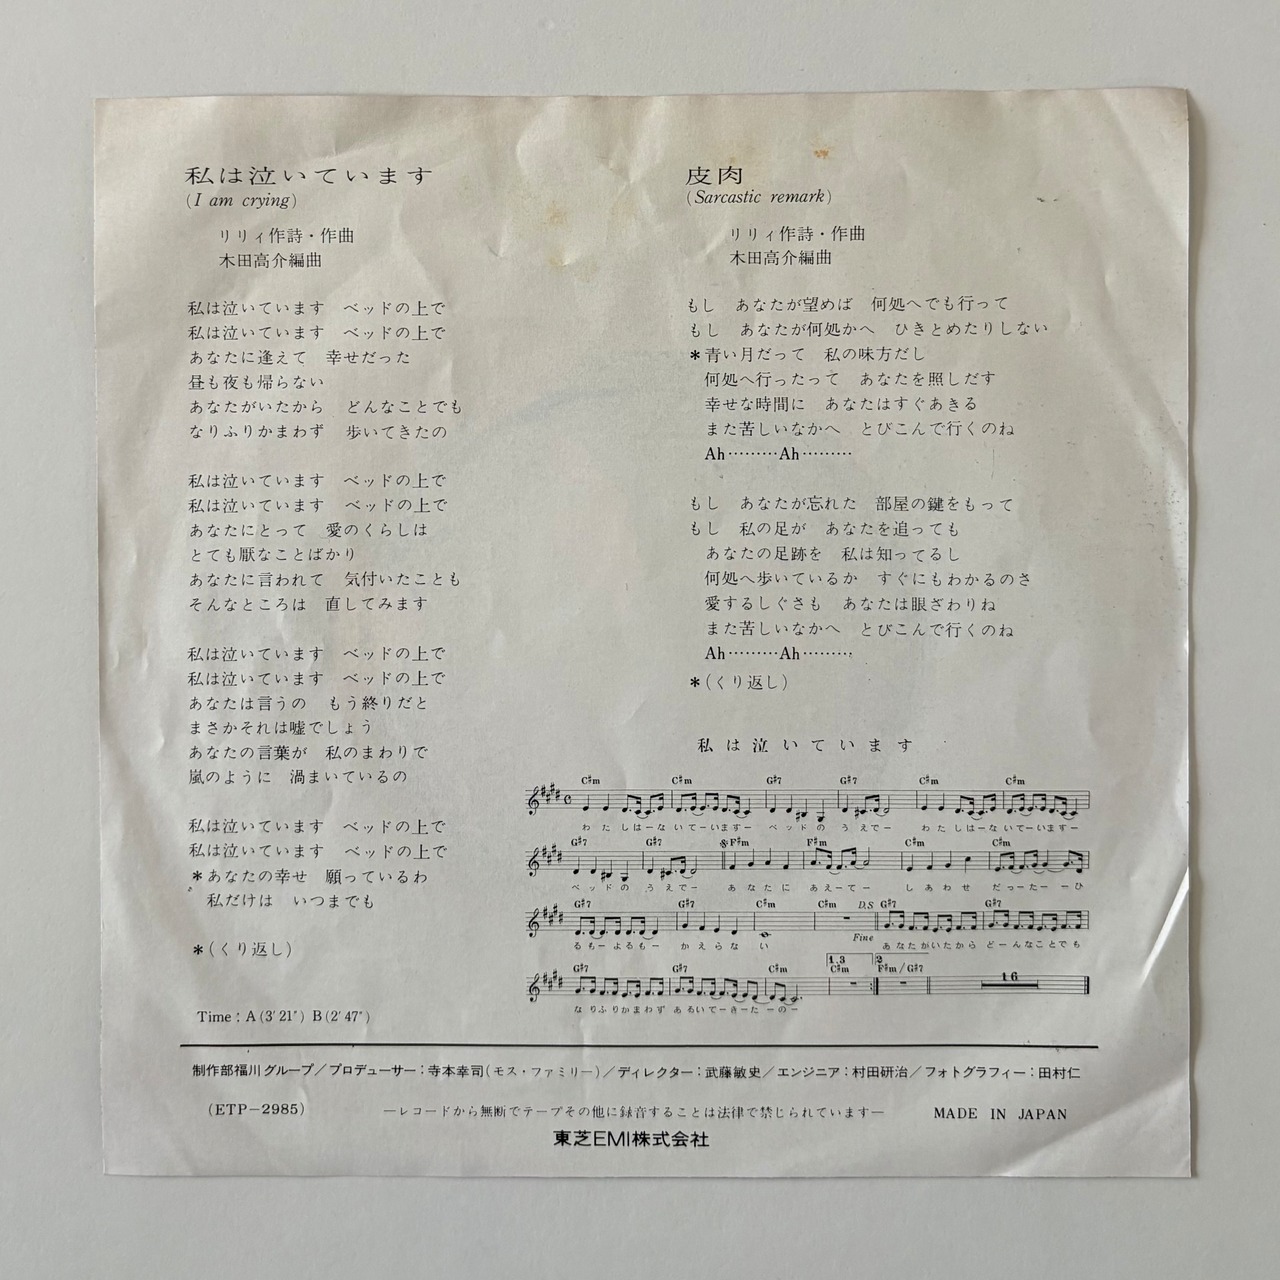 私は泣いています
(I am crying)
リリィ作詩・作曲
木田高介編曲
私は泣いています　ベッドの上で
私は泣いています　ベッドの上で
あなたに逢えて　幸せだった
昼も夜も帰らない
あなたがいたから　どんなことでも
なりふりかまわず　歩いてきたの
私は泣いています　ベッドの上で
私は泣いています　ベッドの上で
あなたにとって　愛のくらしは
とても厭なことばかり
あなたに言われて　気付いたことも
そんなところは　直してみます
私は泣いています　ベッドの上で
私は泣いています　ベッドの上で
あなたは言うの　もう終りだと
まさかそれは嘘でしょう
あなたの言葉が　私のまわりで
嵐のように　渦まいているの
私は泣いています　ベッドの上で
私は泣いています　ベッドの上で
*あなたの幸せ　願っているわ
私だけは　いつまでも
*(くり返し)
Time : A(3′21″) B(2′47″)
皮肉
(Sarcastic remark)
リリィ作詩・作曲
木田高介編曲
もし　あなたが望めば　何処へでも行って
もし　あなたが何処かへ　ひきとめたりしない
*青い月だって　私の味方だし
何処へ行ったって　あなたを照しだす
幸せな時間に　あなたはすぐあきる
また苦しいなかへ　とびこんで行くのね
Ah………Ah………
もし　あなたが忘れた　部屋の鍵をもって
もし　私の足が　あなたを追っても
あなたの足跡を　私は知ってるし
何処へ歩いているか　すぐにもわかるのさ
愛するしぐさも　あなたは眼ざわりね
また苦しいなかへ　とびこんで行くのね
Ah………Ah………
*(くり返し)
私は泣いています
C♯m C♯m G♯7 G♯7 C♯m C♯m
わたしはーないてーいますー ベッドの うえでー わたしはーないてーいますー
G♯7 G♯7 F♯m F♯m C♯m C♯m
ベッドの うえでー あなたに あえーてー しあわせ だったーーひ
G♯7 G♯7 C♯m C♯m D.S G♯7 G♯7
Fine
るもーよるもー かえらな い あなたがいたから どーんなことでも
1.3 2
G♯7 G♯7 C♯m C♯m F♯m/G♯7 16
なりふりかまわず あるいてーきーたーのー
制作部福川グループ／プロデューサー：寺本幸司(モス・ファミリー)／ディレクター：武藤敏史／エンジニア：村田研治／フォトグラフィー：田村仁
(ETP−2985)　―レコードから無断でテープその他に録音することは法律で禁じられています―　MADE IN JAPAN
東芝EMI株式会社